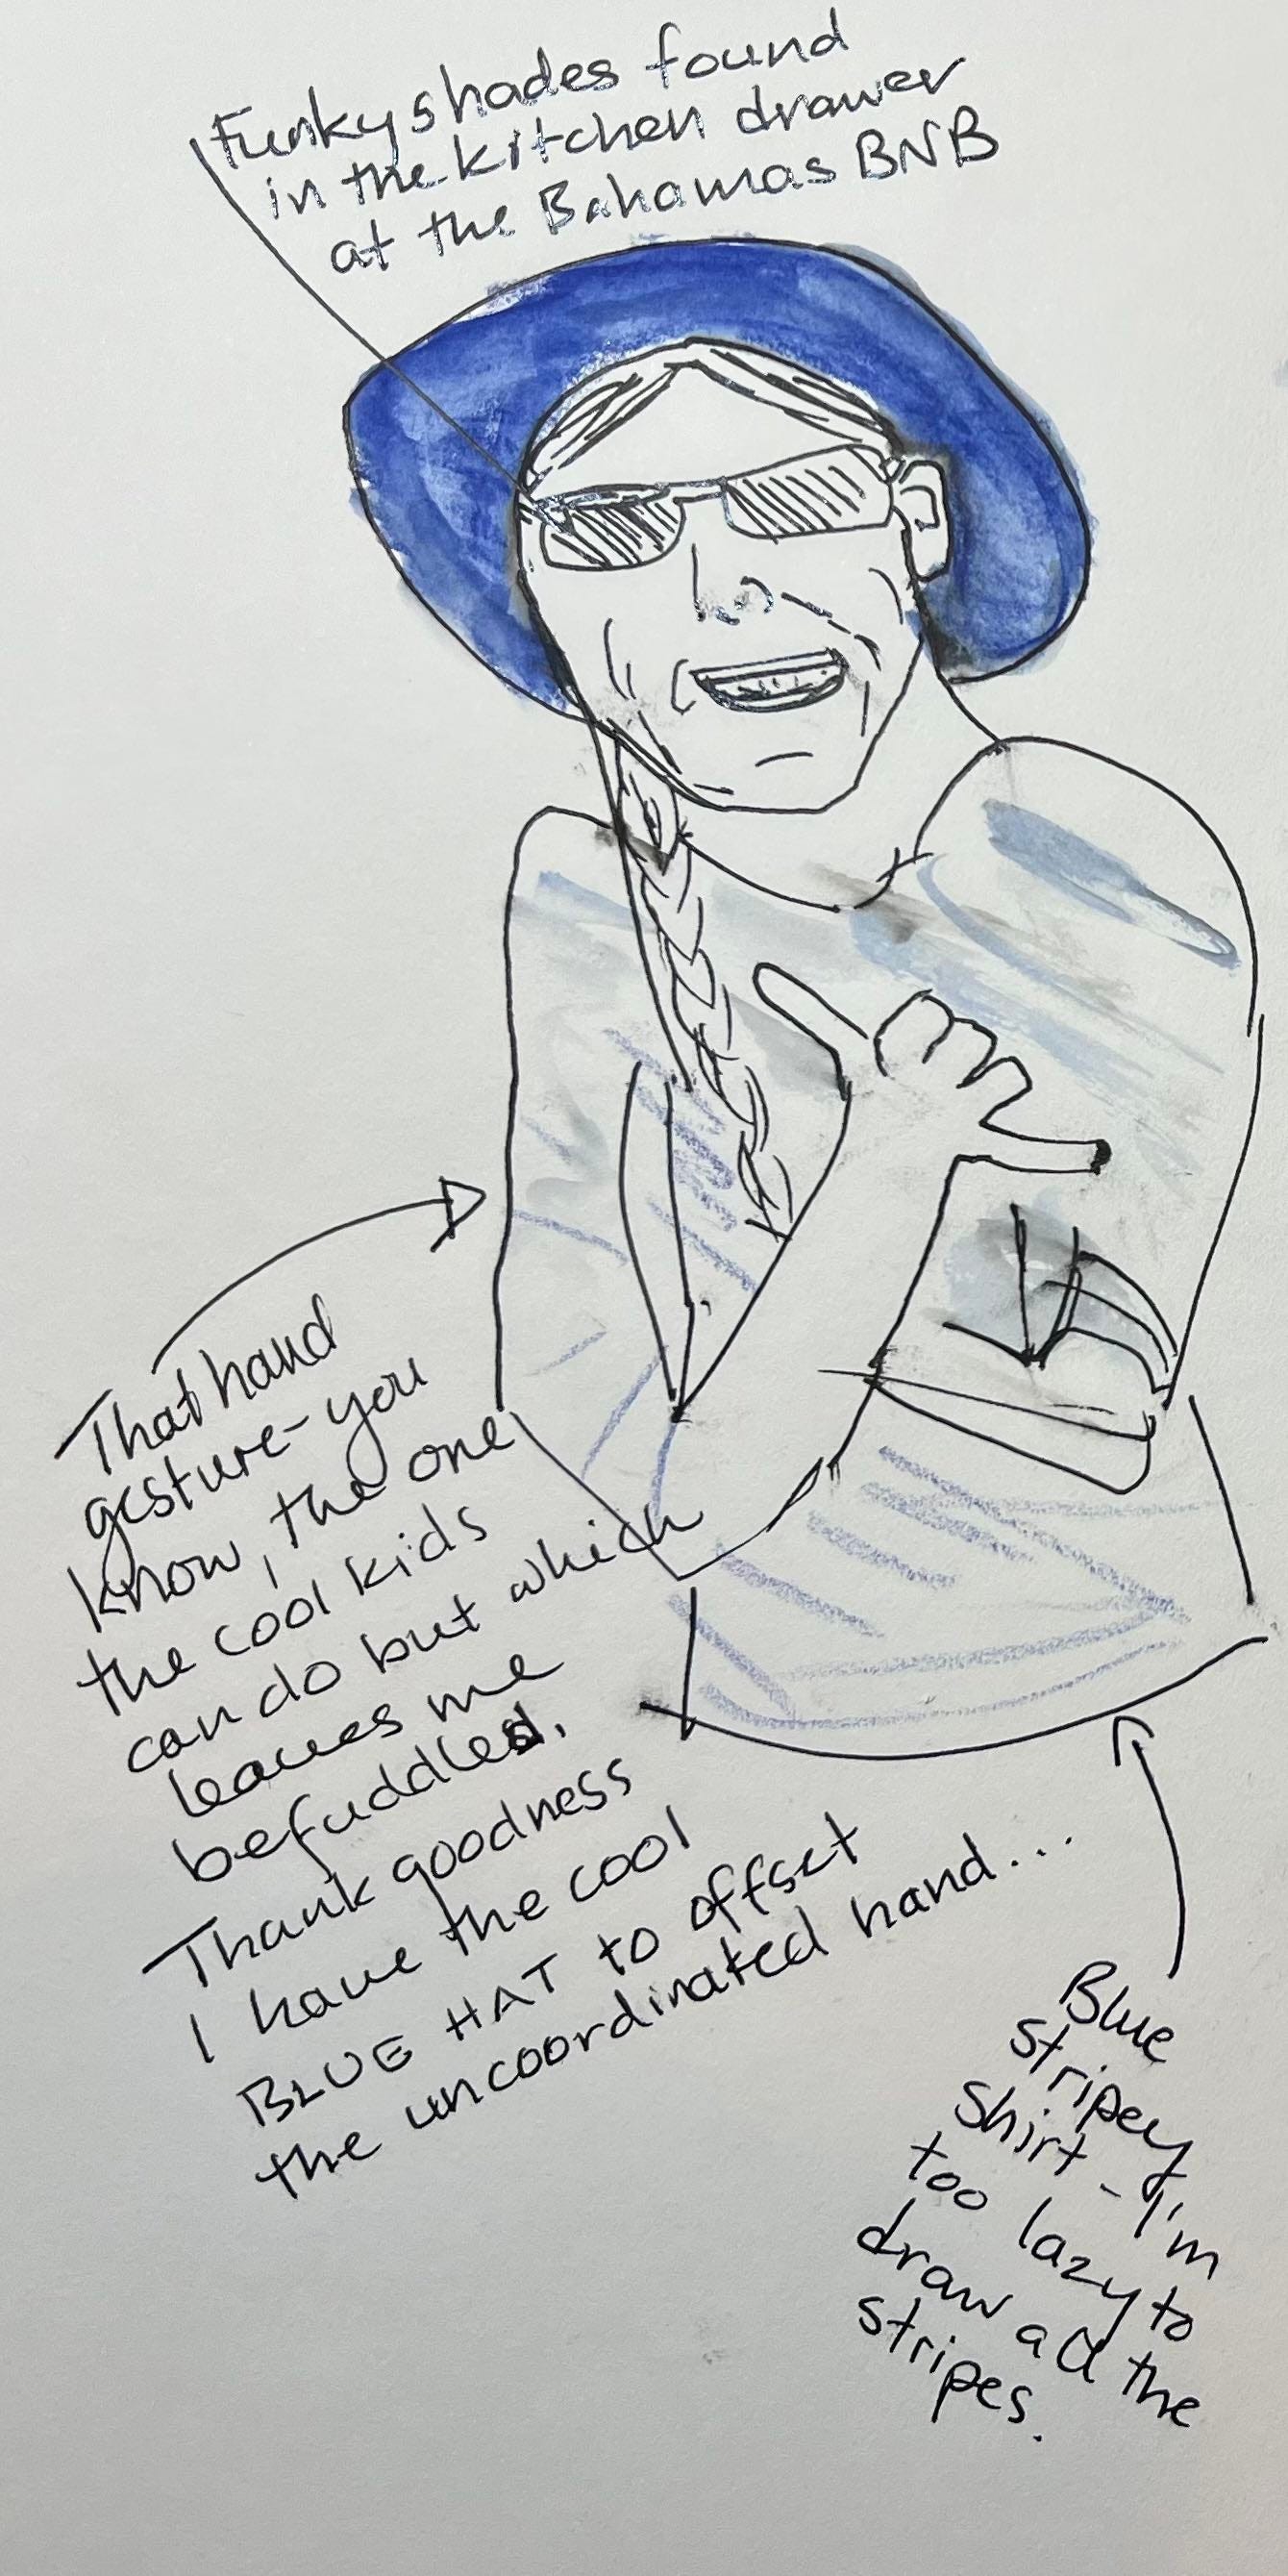 Funky shades found
in the kitchen drawer
at the Bahamas BNB
That hand
gesture - you
know, the one
the cool kids
can do but which
leaves me
befuddled.
Thank goodness
I have the cool
BLUE HAT to offset
the uncoordinated hand...
Blue
stripey
shirt - I'm
too lazy to
draw all the
stripes.